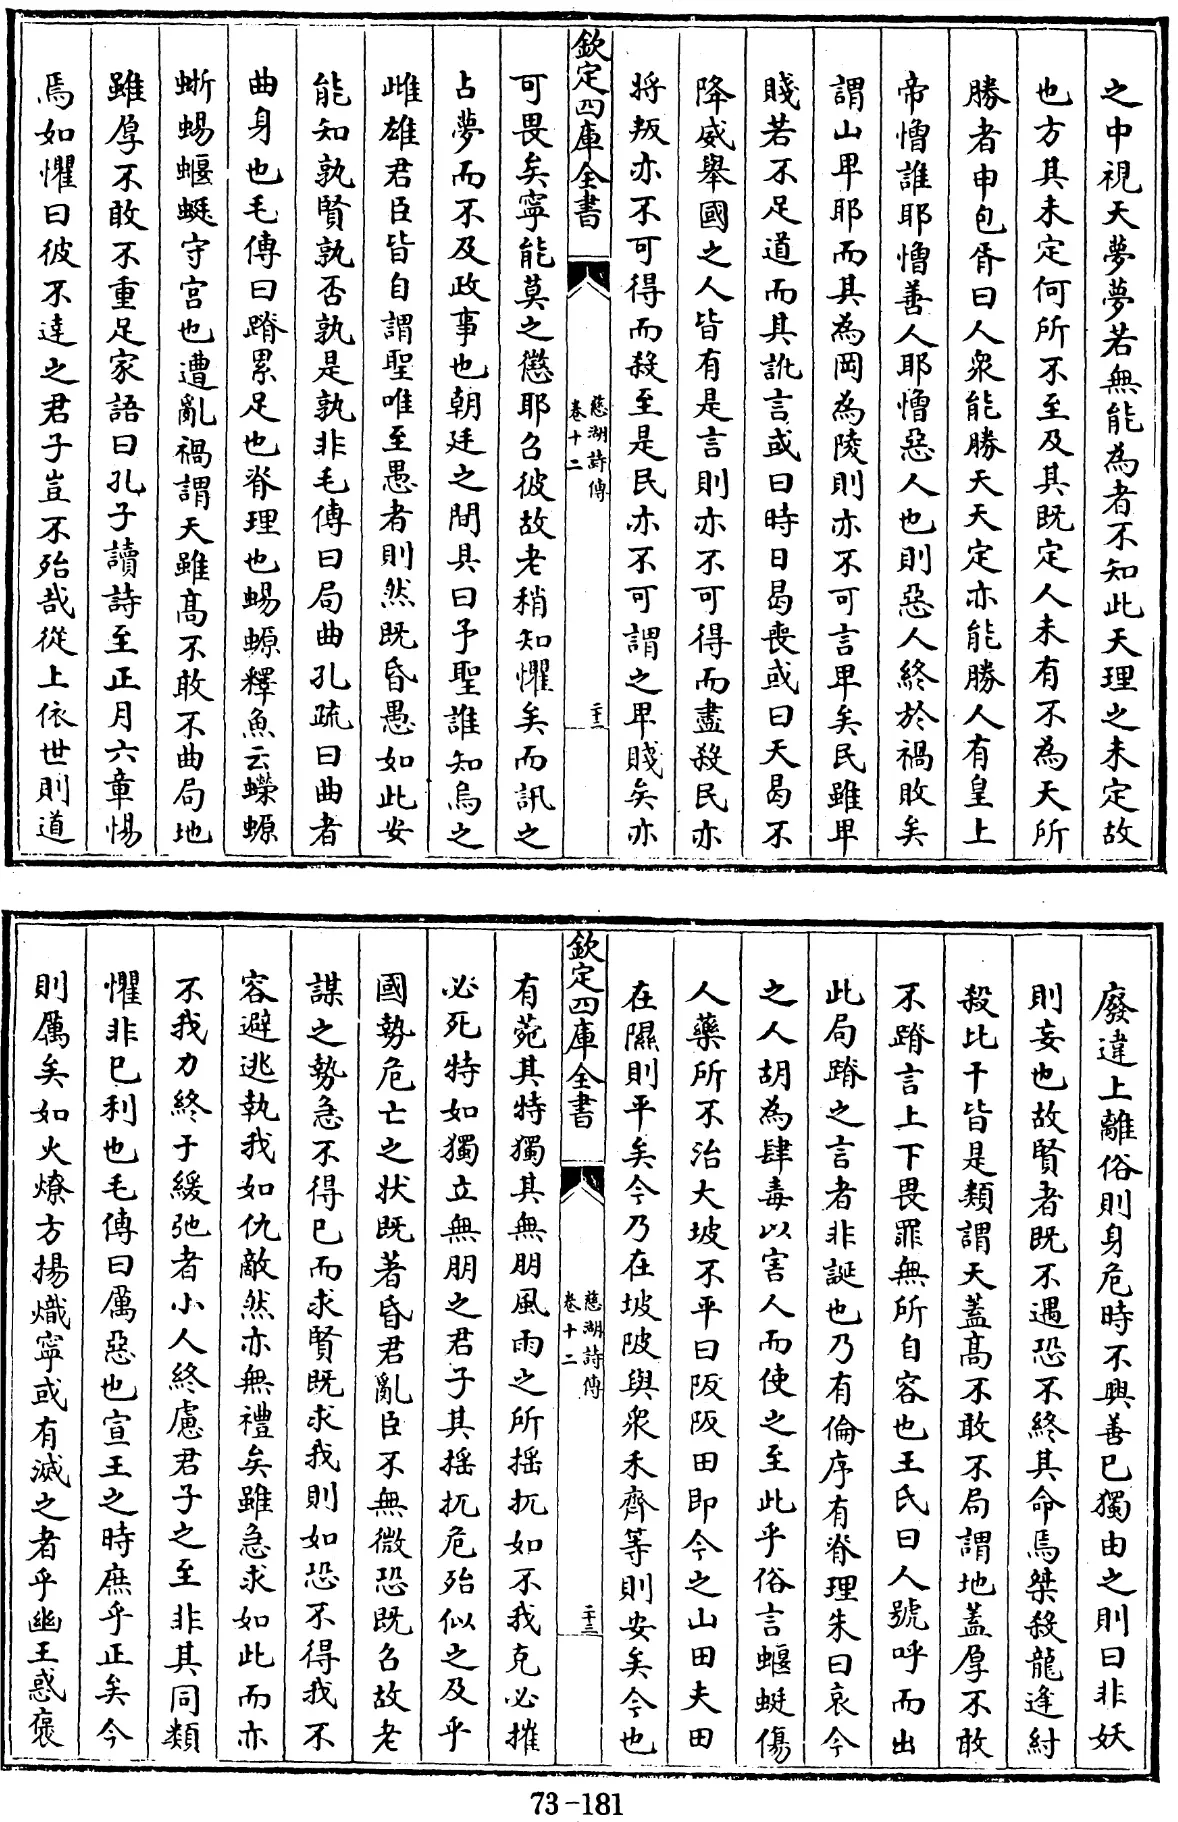 之中視天夢夢若無能為者不知此天理之未定故
也方其未定何所不至及其既定人未有不為天所
勝者申包胥曰人衆能勝天天定亦能勝人有皇上
帝憎誰耶憎善人耶憎惡人也則惡人終於禍敗矣
謂山卑耶而其為岡為陵則亦不可言卑矣民雖卑
賤若不足道而其訛言或曰時日曷喪或曰天曷不
降威舉國之人皆有是言則亦不可得而盡殺民亦
將叛亦不可得而殺至是民亦不可謂之卑賤矣亦
欽定四庫全書
慈湖詩傳
卷十二
二十二
可畏矣寧能莫之懲耶召彼故老稍知懼矣而訊之
占夢而不及政事也朝廷之間具曰予聖誰知烏之
雌雄君臣皆自謂聖唯至愚者則然既昏愚如此安
能知孰賢孰否孰是孰非毛傳曰局曲孔疏曰曲者
曲身也毛傳曰蹐累足也脊理也蜴螈釋魚云蠑螈
蜥蜴蝘蜓守宫也遭亂禍謂天雖髙不敢不曲局地
雖厚不敢不重足家語曰孔子讀詩至正月六章惕
焉如懼曰彼不達之君子豈不殆哉從上依世則道
廢違上離俗則身危時不興善已獨由之則曰非妖
則妄也故賢者既不遇恐不終其命焉桀殺龍逄紂
殺比干皆是類謂天蓋髙不敢不局謂地蓋厚不敢
不蹐言上下畏罪無所自容也王氏曰人號呼而出
此局蹐之言者非誕也乃有倫序有脊理朱曰哀今
之人胡為肆毒以害人而使之至此乎俗言蝘蜓傷
人藥所不治大坡不平曰阪阪田即今之山田夫田
在隰則平矣今乃在坡陂與衆禾齊等則安矣今也
欽定四庫全書
慈湖詩傳
卷十二
二十三
有菀其特獨其無朋風雨之所揺扤如不我克必摧
必死特如獨立無朋之君子其揺扤危殆似之及乎
國勢危亡之狀既著昏君亂臣不無微恐既召故老
謀之勢急不得已而求賢既求我則如恐不得我不
容避逃執我如仇敵然亦無禮矣雖急求如此而亦
不我力終于緩弛者小人終慮君子之至非其同類
懼非已利也毛傳曰厲惡也宣王之時庶乎正矣今
則厲矣如火燎方揚熾寜或有滅之者乎幽王惑褒
73-181